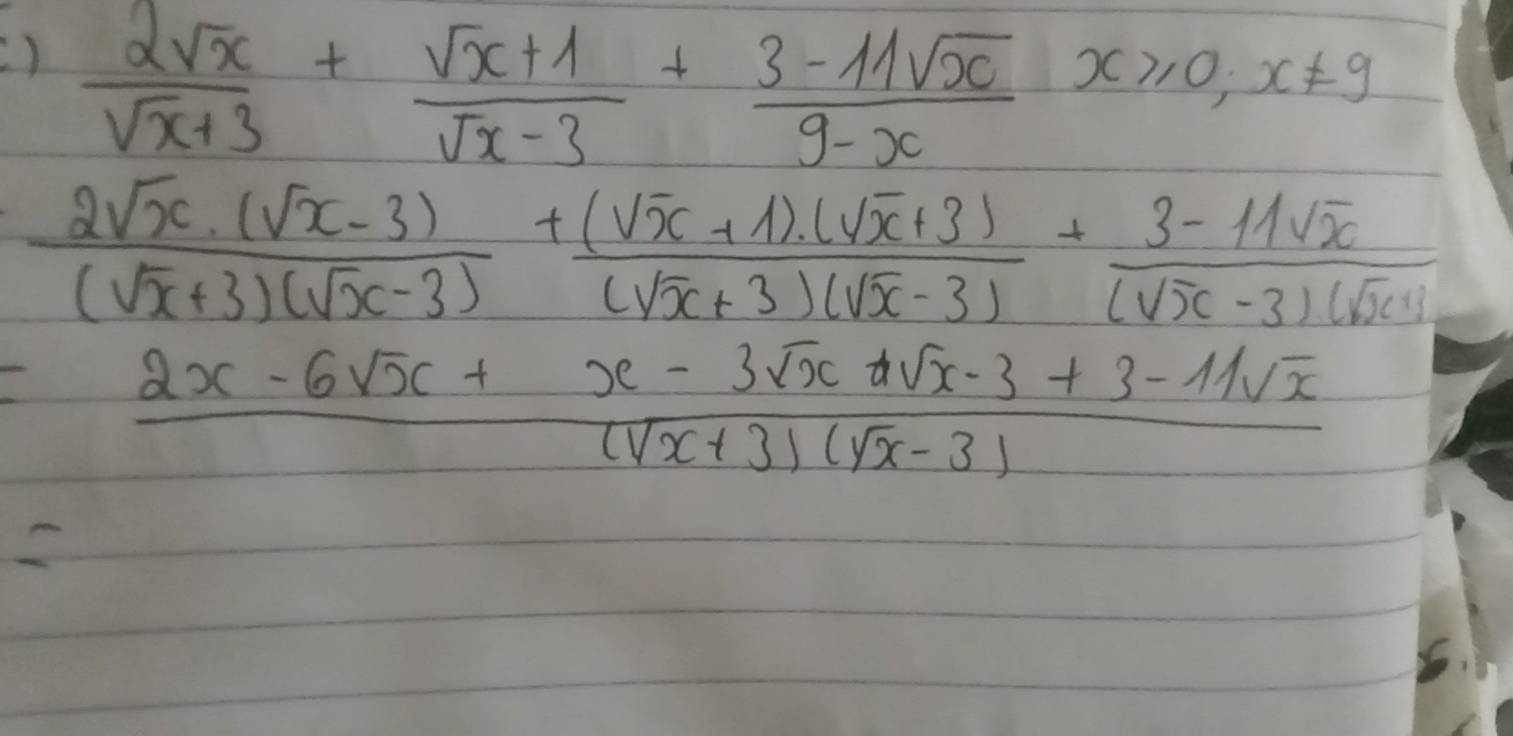 c) 2√x/(√x+3) + (√x+1)/(√x-3) + (3-11√x)/(9-x) x⩾0; x≠9
(2√x.(√x-3))/((√x+3)(√x-3)) + ((√x+1).(√x+3))/((√x+3)(√x-3)) + (3-11√x)/((√x-3)(√x+3
= (2x-6√x + x-3√x+√x-3+3-11√x)/((√x+3)(√x-3))
=